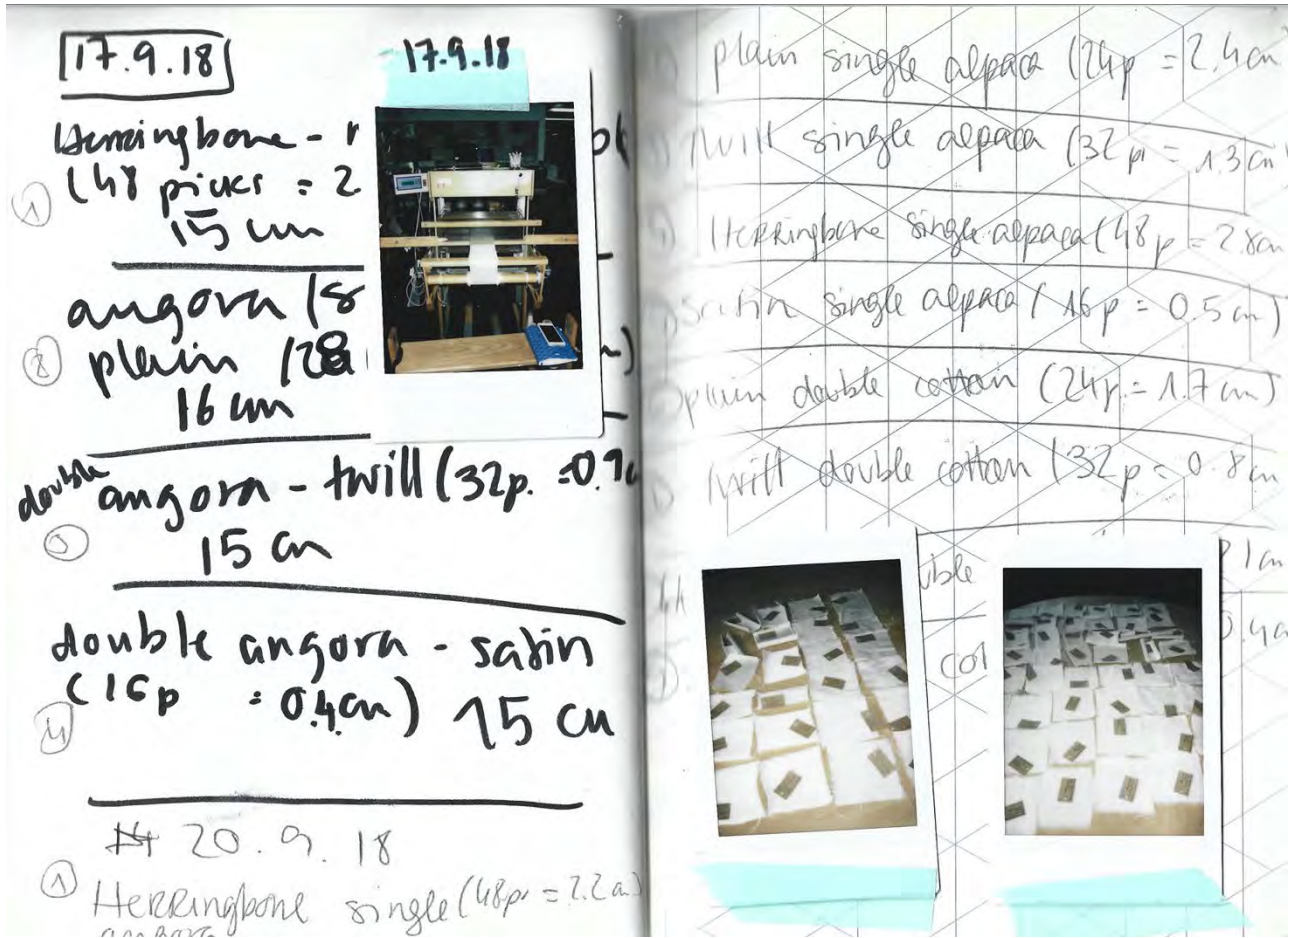 17.9.18
17.9.18
Herringbone -
(48 picks = 2
① 15 cm
angora /s
② plain /28
16 cm
double
angora - twill (32p. =0.
③ 15 cm
double angora - satin
(16p = 0.4cm) 15 cm
④
20.9.18
① HeRRingbone single (48p = 2.2cm)
angora
plain single alpaca (24p = 2.4cm
twill single alpaca (32p = 1.3cm
HeRRingbone single alpaca (48p = 2.8cm
satin single alpaca (16p = 0.5cm)
plain double cotton (24p = 1.7cm)
twill double cotton (32p = 0.8cm
uble
1cm
cot
0.4c